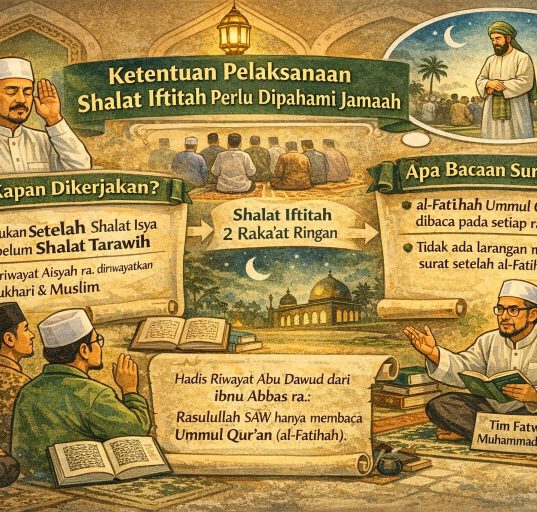 Ketentuan Pelaksanaan
Shalat Iftitah Perlu Dipahami Jamaah
Kapan Dikerjakan?
Setelah Shalat Isya
Shalat Tarawih
riwayat Aisyah ra. diriwayatkan
& Muslim
Shalat Iftitah
2 Raka'at Ringan
Apa Bacaan
al-Fatihah Ummul
dibaca pada setiap
Tidak ada larangan
surat setelah
Hadis Riwayat Abu Dawud dari
ibnu Abbas ra.:
Rasulullah SAW hanya membaca
Ummul Qur'an (al-Fatihah).
Tim